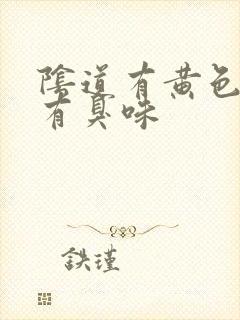 陰道有黄色
有臭味
鉄瑾